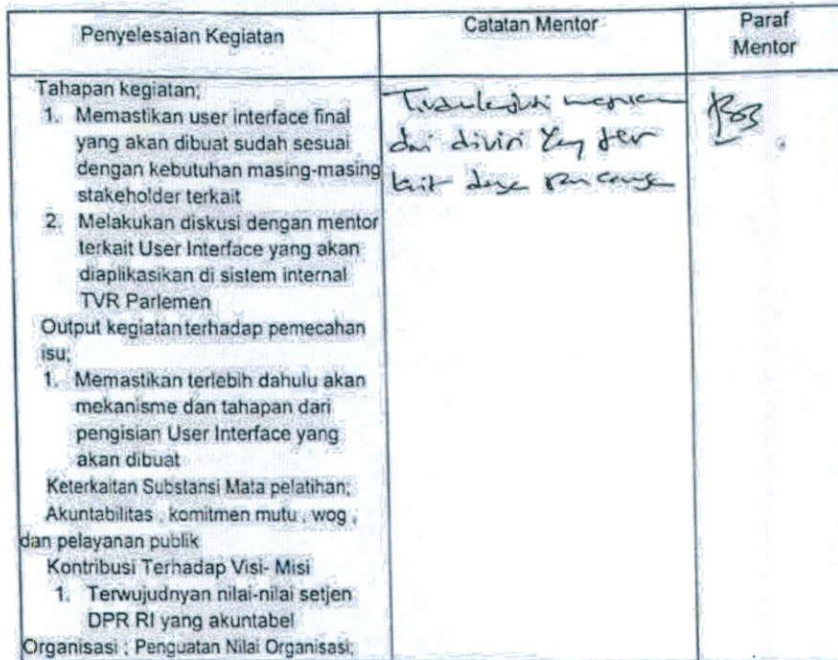 Penyelesaian Kegiatan
Catatan Mentor
Paraf
Mentor
Tahapan kegiatan;
1. Memastikan user interface final
yang akan dibuat sudah sesuai
dengan kebutuhan masing-masing
stakeholder terkait
2. Melakukan diskusi dengan mentor
terkait User Interface yang akan
diaplikasikan di sistem internal
TVR Parlemen
Output kegiatan terhadap pemecahan
isu;
1. Memastikan terlebih dahulu akan
mekanisme dan tahapan dari
pengisian User Interface yang
akan dibuat
Keterkaitan Substansi Mata pelatihan;
Akuntabilitas , komitmen mutu , wog ,
dan pelayanan publik
Kontribusi Terhadap Visi- Misi
1. Terwujudnyan nilai-nilai setjen
DPR RI yang akuntabel
Organisasi ; Penguatan Nilai Organisasi;
dari divisi yang ter
kait